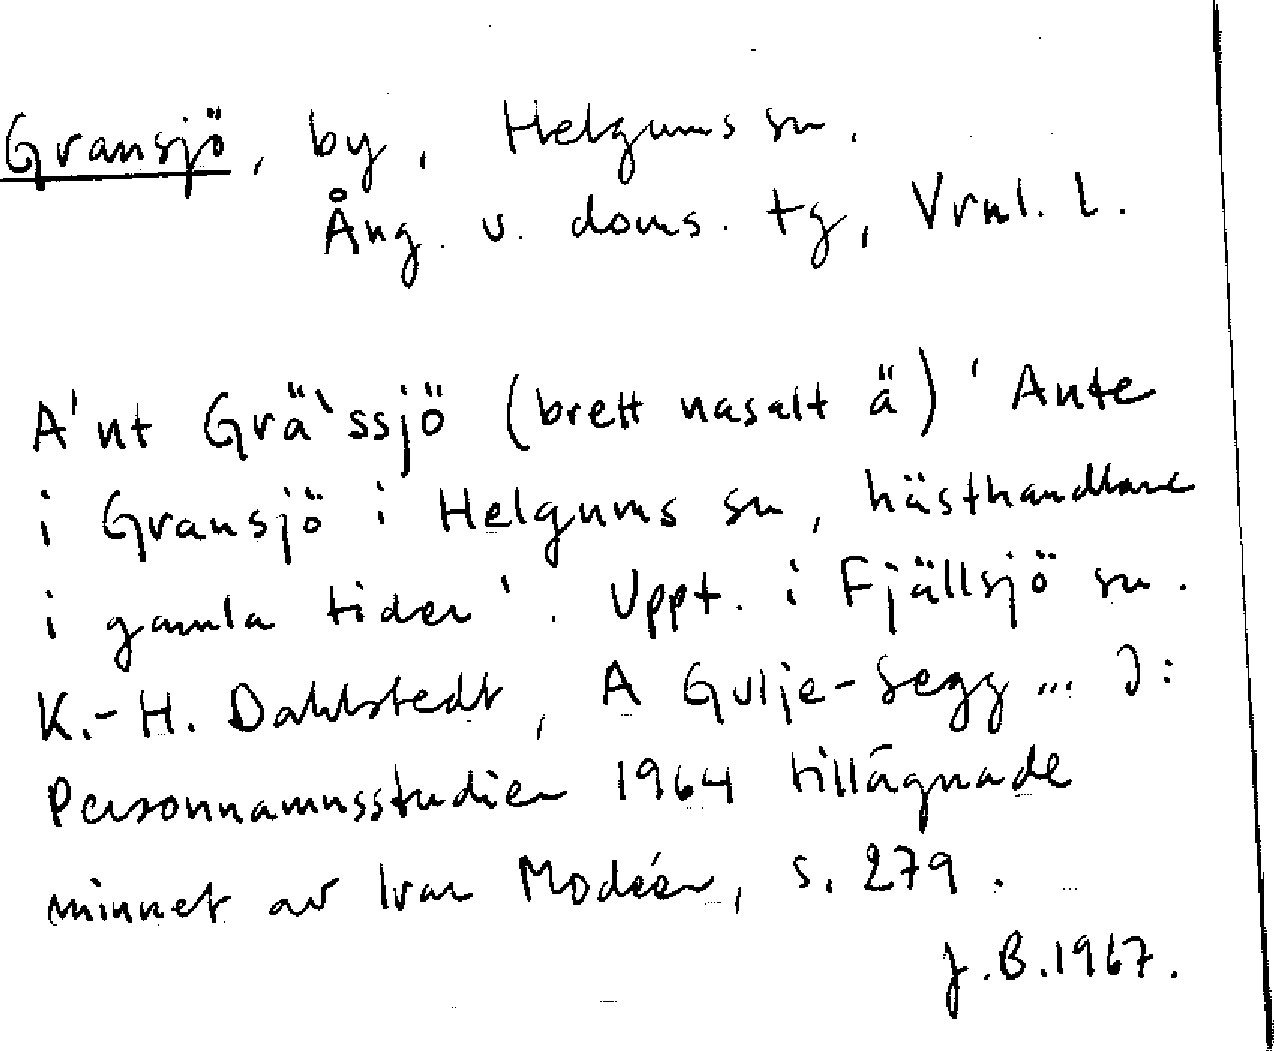 Gransjö, by, Helgums sn.
Ång. v. doms. tg, Vrnl. l.
A'nt Grä`ssjö (brett nasalt ä) 'Ante
i Gransjö i Helgums sn, hästhandlare
i gamla tider'. Uppt. i Fjällsjö sn.
K.-H. Dahlstedt, A Gulje-Segg ... I:
Personnamnsstudier 1964 tillägnade
minnet av Ivar Modéer, s. 279.
J.B.1967.